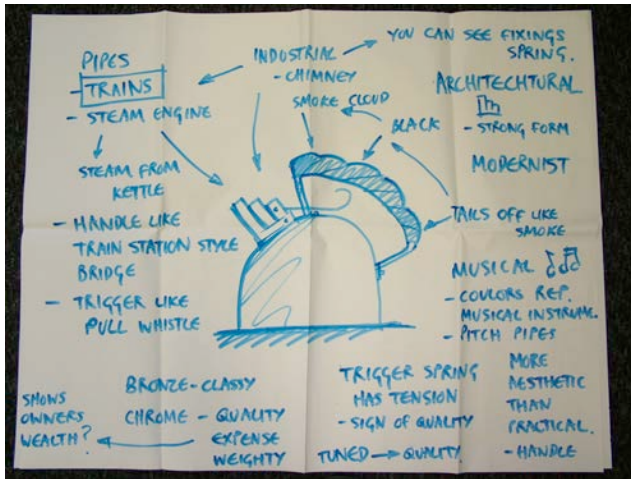 PIPES
- TRAINS
- STEAM ENGINE
STEAM FROM
KETTLE
- HANDLE LIKE
TRAIN STATION STYLE
BRIDGE
- TRIGGER LIKE
PULL WHISTLE
INDUSTRIAL
- CHIMNEY
SMOKE CLOUD
BLACK
YOU CAN SEE FIXINGS
SPRING.
ARCHITECHTURAL
- STRONG FORM
MODERNIST
TAILS OFF LIKE
SMOKE
MUSICAL
- COULORS REP.
MUSICAL INSTRUME.
- PITCH PIPES
MORE
AESTHETIC
THAN
PRACTICAL.
- HANDLE
TRIGGER SPRING
HAS TENSION
- SIGN OF QUALITY
TUNED → QUALITY.
BRONZE - CLASSY
CHROME - QUALITY
EXPENSE
WEIGHTY
SHOWS
OWNERS
WEALTH?